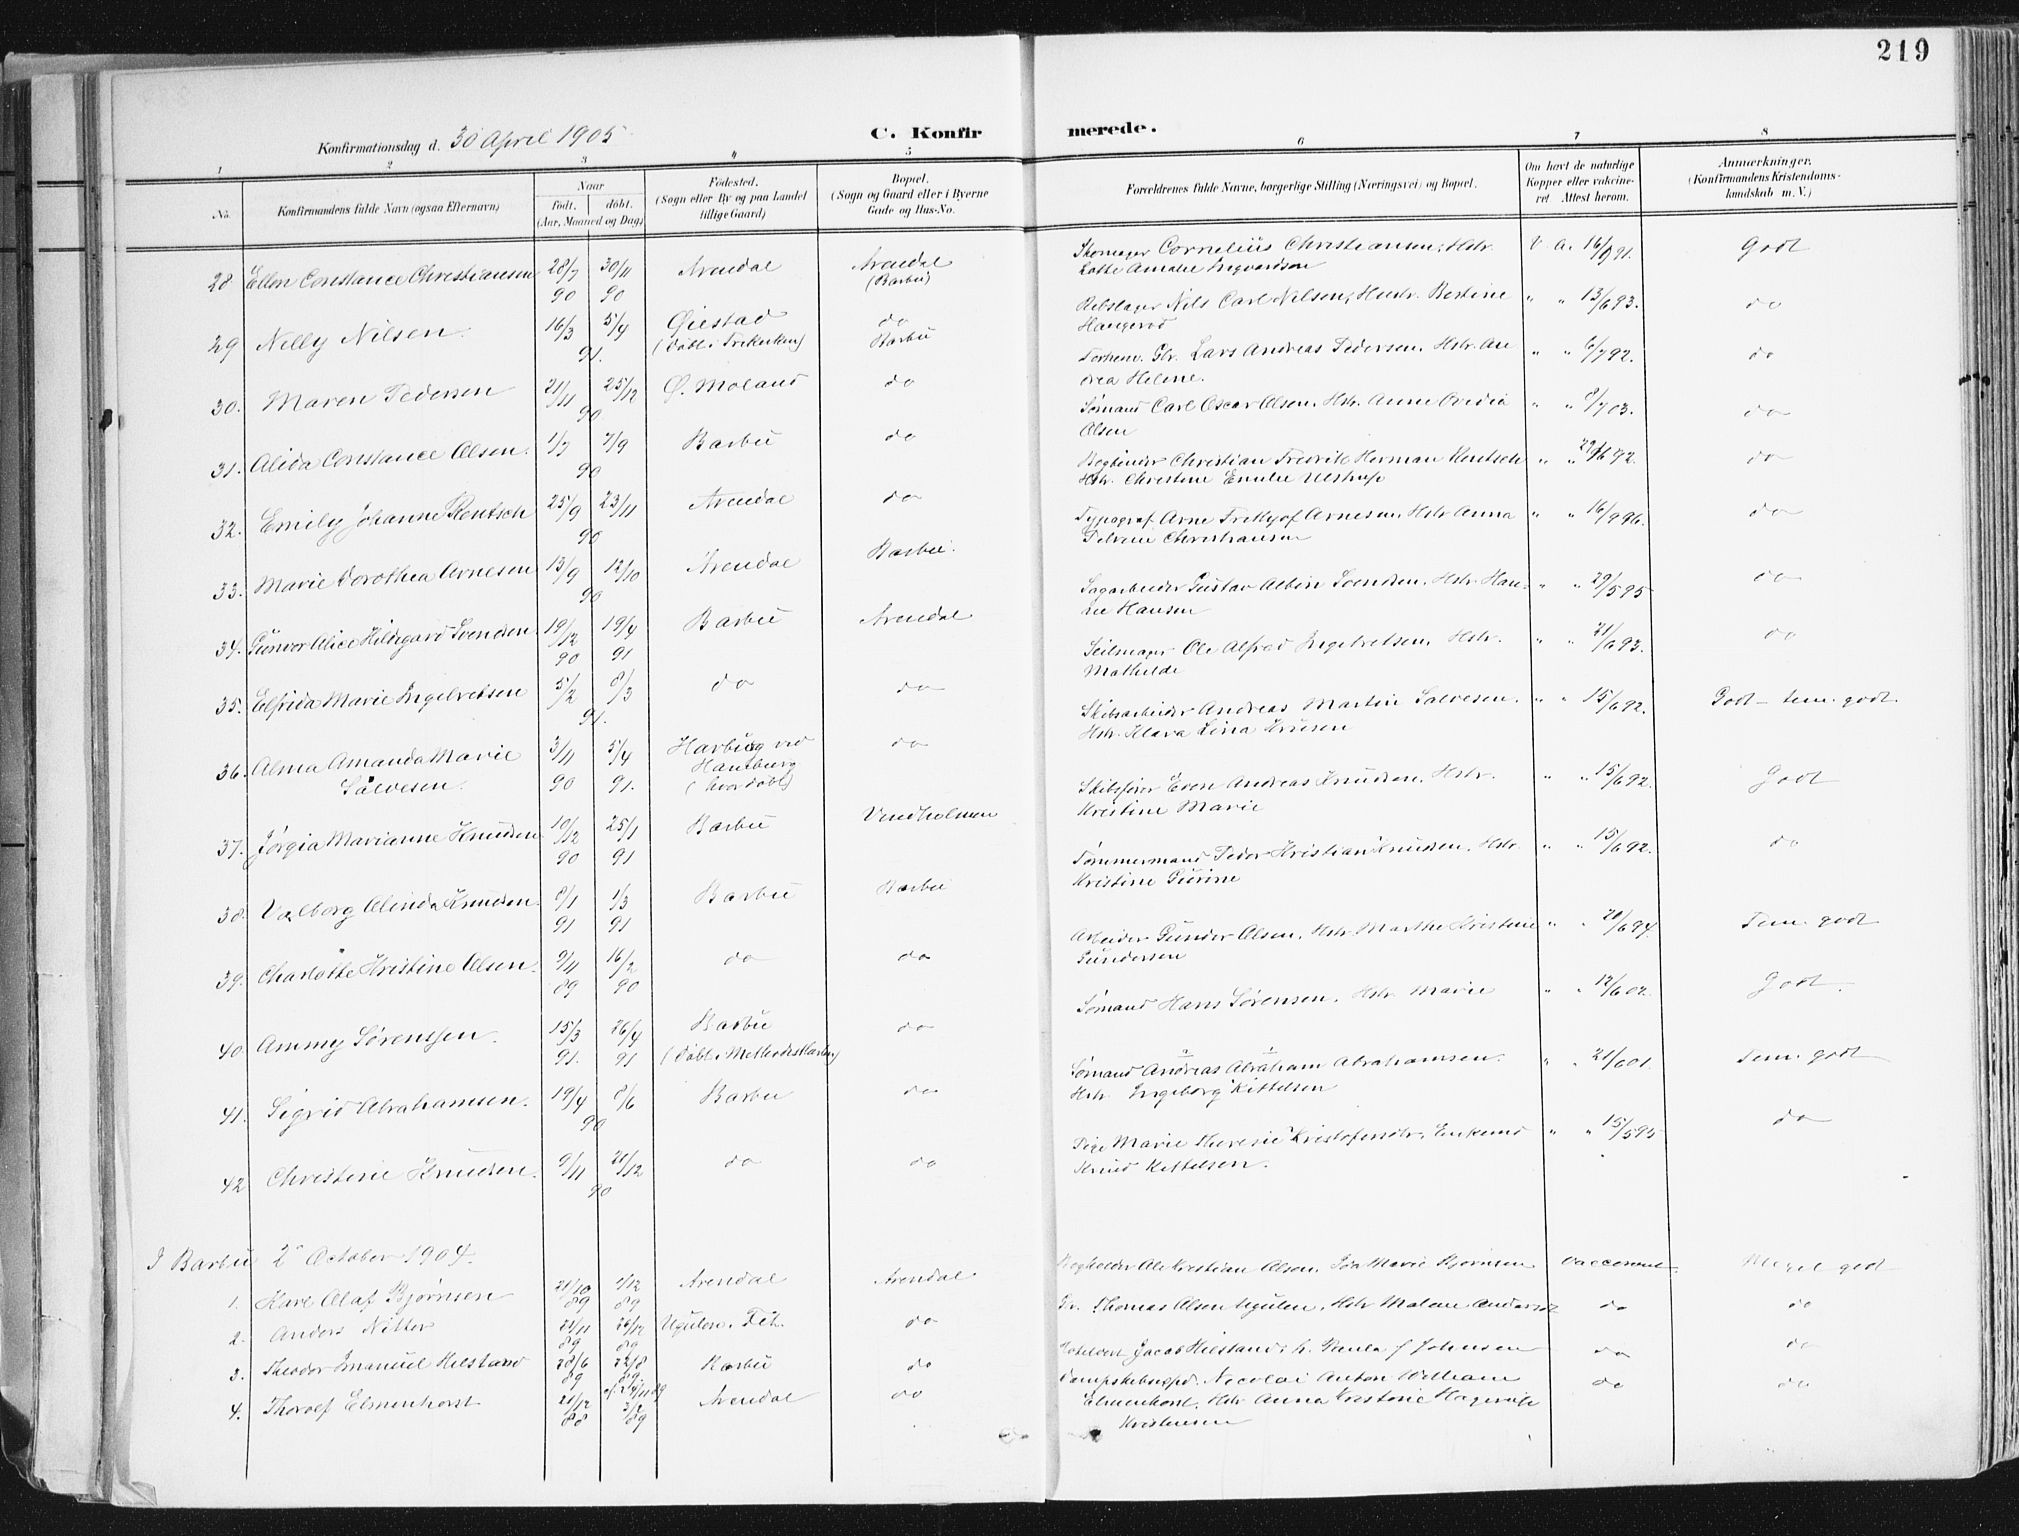 219
Konfirmationsdag d. 30 April 1905
C. Konfirmerede.
1 2 3 4 5 6 7 8
No.
Konfirmandens fulde Navn (ogsaa Efternavn)
Naar
født. døbt.
(Aar, Maaned og Dag)
Fødested.
(Sogn eller By og paa Landet
tillige Gaard)
Bopæl.
(Sogn og Gaard eller i Byerne
Gade og Hus-No.
Forældrenes fulde Navne, borgerlige Stilling (Næringsvei) og Bopæl.
Om havt de naturlige
Kopper eller vakcine-
ret. Attest herom.
Anmærkninger.
(Konfirmandens Kristendoms-
kundskab m. V.)
28 Ellen Constance Christiansen 28/7 90 30/11 90 Arendal Arendal (Barbu)
Skomager Cornelius Christiansen, Hstr.
Lotte Amalie Ingvardsen
V. a. 16/9 91. Godt
29 Nelly Nilsen. 16/3 5/4 91. Øiestad do Barbu
Rebslager Nils Carl Nilsen, Hustr. Bertine
" " 13/6 93. do
30. Maren Pedersen 21/11 25/12 90 Ø. Moland do
Lars Andreas Pedersen. Hstr. An
drea Helene.
" " 6/7 92. do
31. Alida Constance Olsen. 1/7 7/9 90 Barbu do
Sømand Carl Oscar Olsen. Hstr. Anne Ovedia
Olsen
" " 8/7 03. do
32. Emily Johanne Rentsch 25/9 23/11 90 Arendal do
Bogbinder Christian Fredrik Herman Rentsch
Hstr. Christine Emilie Ulstrup
do
33. Marie Dorothea Arnesen 13/9 12/10 90 Arendal Barbu.
Typograf Arne Frithjof Arnesen, Hstr Anna
Christiansen
" " 16/9 96. do
34. Gunvor Alice Hildegard Svendsen. 19/12 90 19/4 91 Barbu Arendal
Sagarbeider Gustav Albin Svendsen. Hstr. Han-
ne Hansen
" " 29/5 95 do
35. Elfrida Marie Ingelvetsen 5/2 8/3 91. do do
Seilmager Ole Alfred Ingelvetsen, Hstr.
Mathilde
" " 21/6 93. do
36. Alma Amanda Marie
Salvesen. 3/11 90 5/4 91. Harburg ved
Hamburg
(hvor døbt) do
Skibsarbeider Andreas Martin Salvesen.
Hstr. Klara Lina
" " 15/6 92. Godt - tem. godt.
37. Jørgia Marianne Knudsen 10/12 90 25/1 91 Barbu Vindholmen
Skibsfører Even Andreas Knudsen, Hstr.
Kristine Marie
" " 15/6 92. Godt
38. Valborg Alinda Knudsen. 8/1 91 1/3 91 Barbu Barbu
Tømmermand Peder Kristian Knudsen. Hstr.
Kristine Gurine
" " 15/6 92. do
39. Charlotte Kristine Olsen. 9/11 89 16/2 90 do do
Arbeider Gunder Olsen. Hstr Marthe Kristine
Gundersen
" " 20/6 94. Tem. godt
40. Ammy Sørensen. 15/3 91. 26/4 91 Barbu do
Sømand Hans Sørensen. Hstr Marie
" " 12/6 02. Godt.
41. Sigrid Abrahamsen. 19/4 8/6 90 Barbu do
Sømand Andreas Abraham Abrahamsen.
Hstr. Ingeborg Kittelsen
" " 21/6 01. Tem. godt
42 Christine Knudsen. 9/11 21/12 90 do do
Pige Marie Theresie Kristofersdtr, Enkemd
Knud Kittelsen.
" " 15/5 95 do
I Barbu 2 October 1904.
1. Karl Olaf Bjørnsen 21/10 89 1/12 89 Arendal Arendal
Bogholder Ole Kristian Olsen, Marie Bjørnsen
vaccineret. Meget godt
2. Anders Nitter 21/11 89 26/12 89 do
Thomas Olsen Hstr Malene
do do
3. Theodor Emanuel Hilstand 28/6 89 Barbu do
Jacob Hilstand, Johnsen
do do
4. Thorolf Elmenhorst 21/12 88 3/2 89 Arendal do
Nicolai Anton William
Elmenhorst. Hstr Anna Kristine
Kristensen
do do